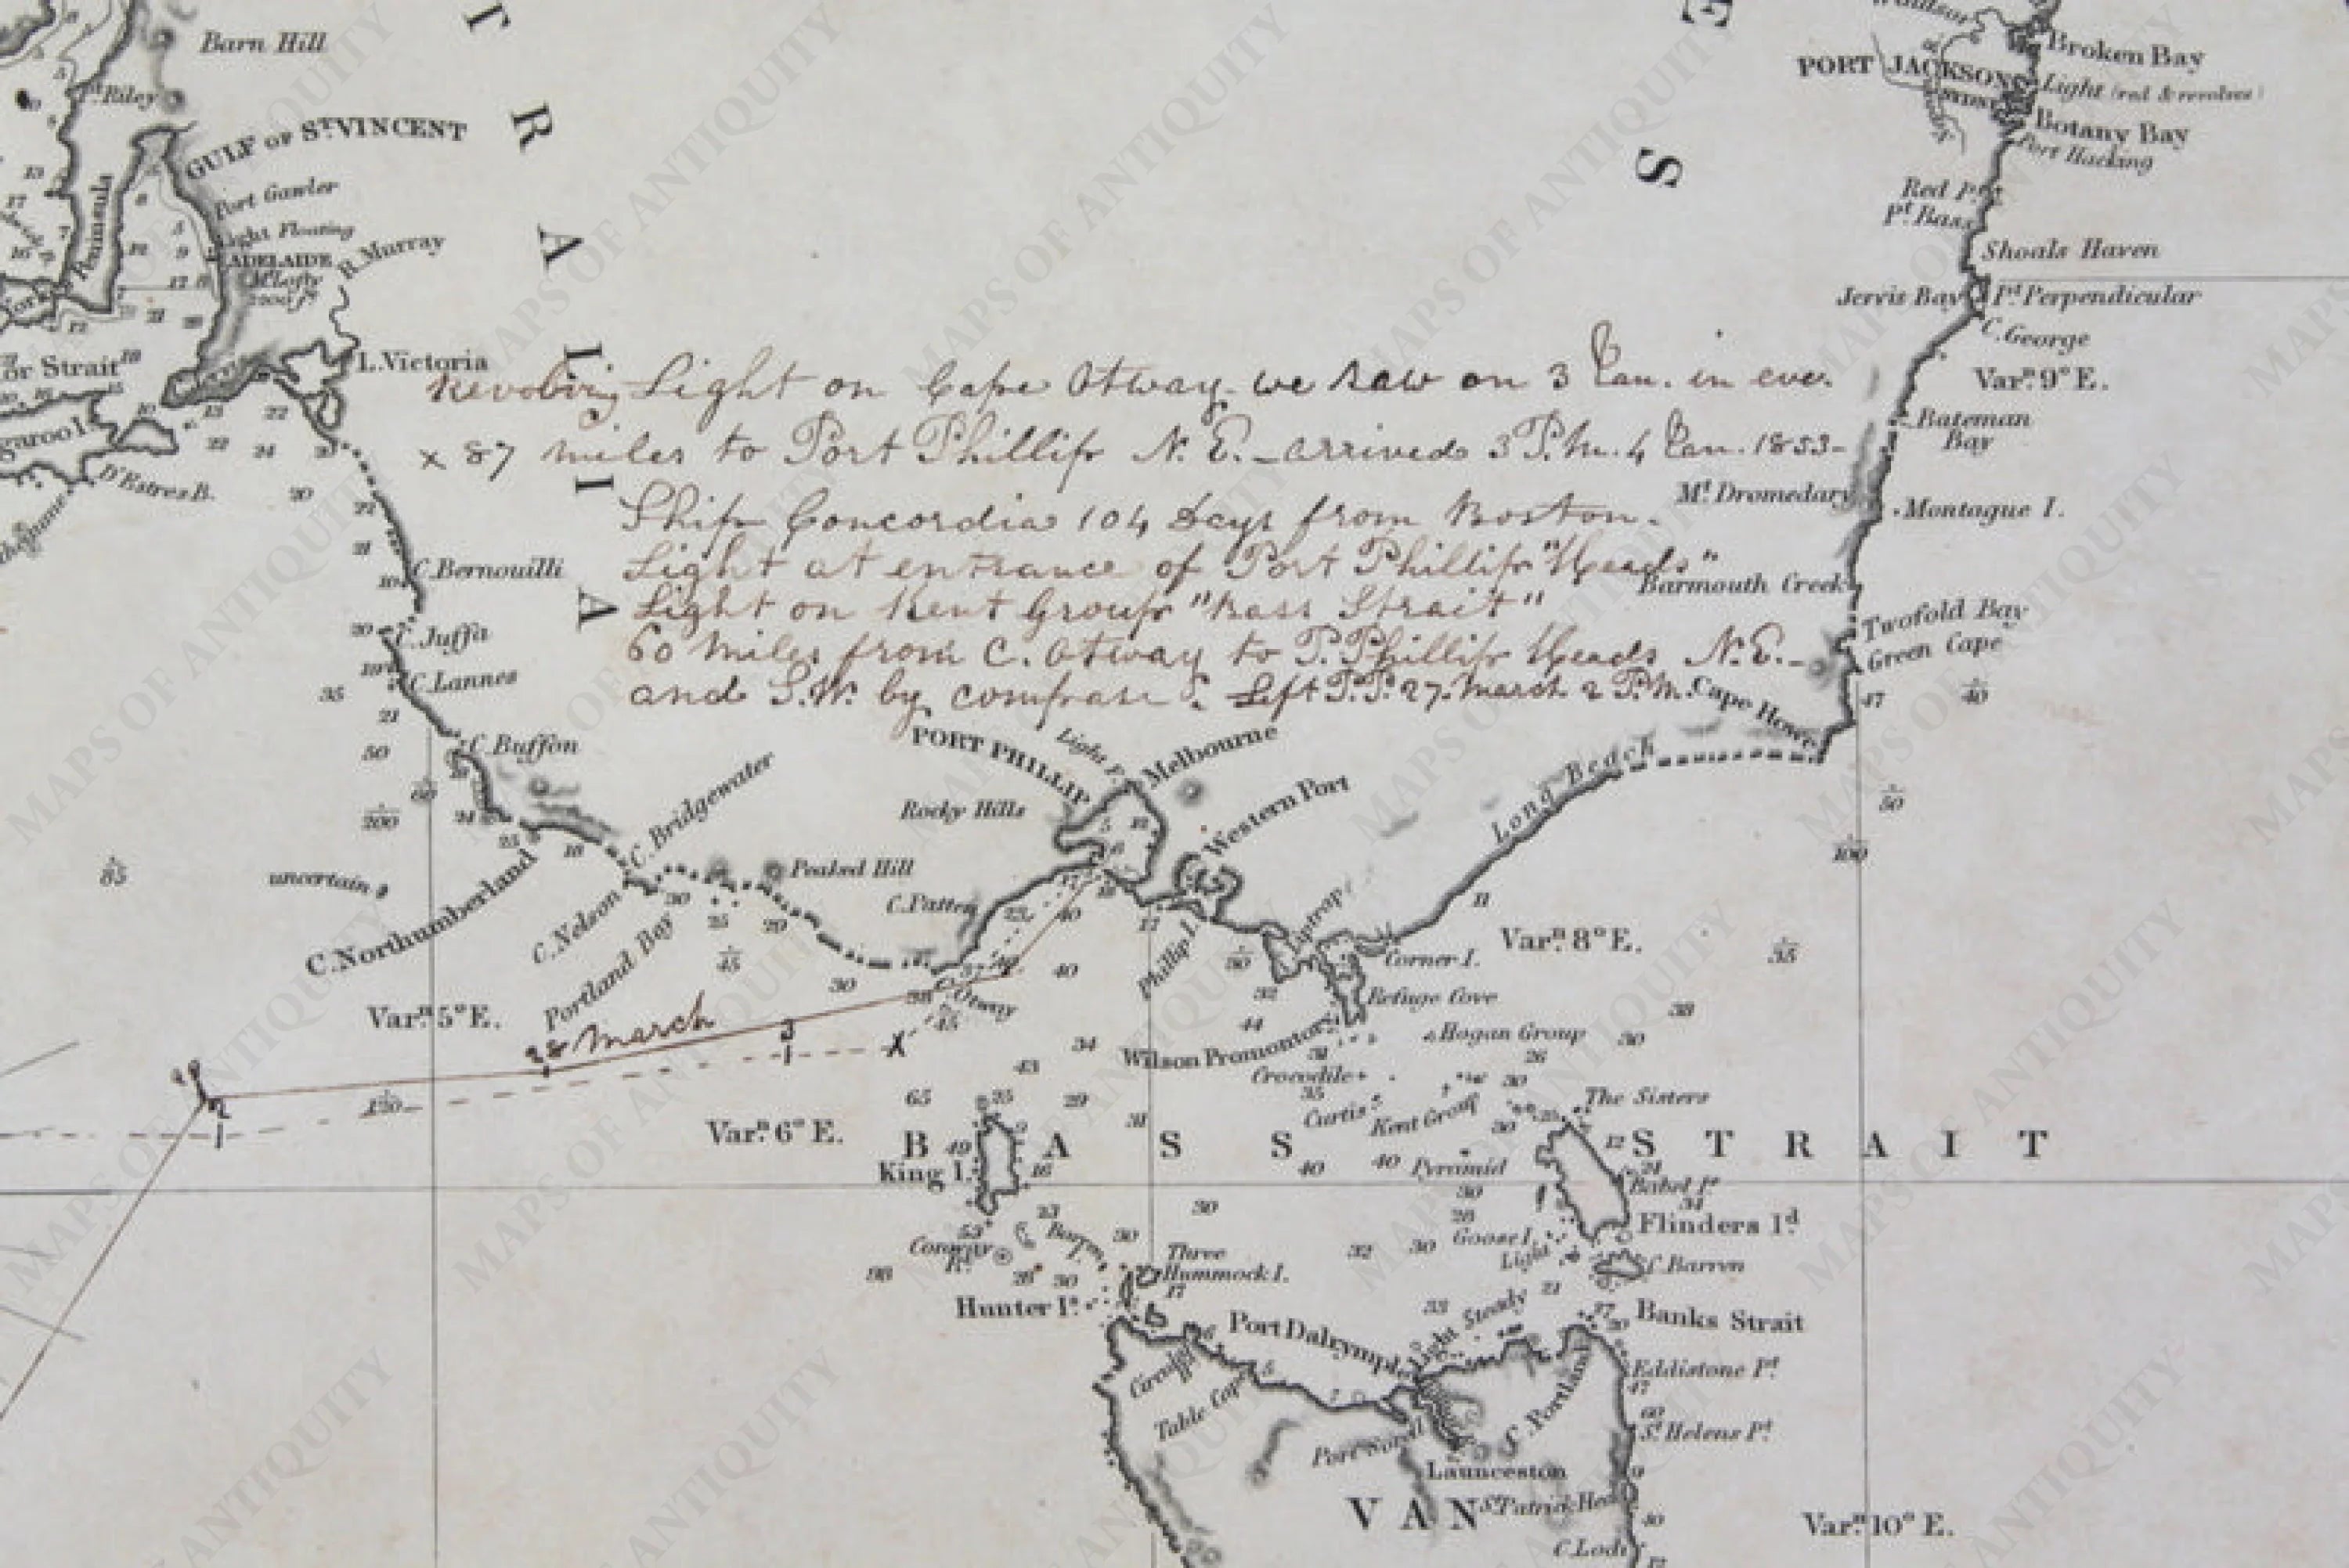 Barn Hill
Pt. Riley
GULF OF ST. VINCENT
Port Gawler
Light Floating
ADELAIDE
Mt. Lofty
2200 ft.
R. Murray
Peninsula
L. Victoria
or Strait
garoo I.
D'Estres B.
C. Bernouilli
C. Juffa
C. Lannes
C. Buffon
uncertain
C. Northumberland
C. Bridgewater
C. Nelson
Portland Bay
Peaked Hill
Rocky Hills
C. Patten
C. Otway
PORT PHILLIP
Light F.
Melbourne
Western Port
Phillip I.
Liptrap
Corner I.
Refuge Cove
Wilson Promontory
Hogan Group
Crocodile
Curtis
Kent Group
The Sisters
Pyramid
Babel Is.
Flinders Id.
Goose I.
Light
C. Barren
Banks Strait
King I.
Conway
Rk.
Barren I.
Three
Hummock I.
Hunter Is.
Circular
Table Cape
Port Dalrymple
Light Steady
C. Portland
Eddistone Pt.
St. Helens Pt.
Port Sorell
Launceston
St. Patrick Head
C. Lodi
VAN
BASS STRAIT
Long Beach
Cape Howe
Green Cape
Twofold Bay
Barmouth Creek
Montague I.
Mt. Dromedary
Bateman
Bay
C. George
Jervis Bay
Pt. Perpendicular
Shoals Haven
Pt. Bass
Red Pt.
Port Hacking
Botany Bay
Light (red & revolves)
PORT JACKSON
SYDNEY
Broken Bay
Windsor
Varn. 5° E.
Varn. 6° E.
Varn. 8° E.
Varn. 9° E.
Varn. 10° E.
T R A L I A
E S
Revolving Light on Cape Otway we saw on 3 Jan. in eve.
x 87 miles to Port Phillip N. E. – arrived 3 P.M. 4 Jan. 1853 –
Ship Concordia 104 Days from Boston.
Light at entrance of Port Phillip "Heads"
Light on Kent Group "Bass Strait"
60 Miles from C. Otway to P. Phillip Heads N. E. –
and S.W. by compass. Left P.P. 27. March 2 P.M.
28 March
3
x
2
MAPS OF ANTIQUITY